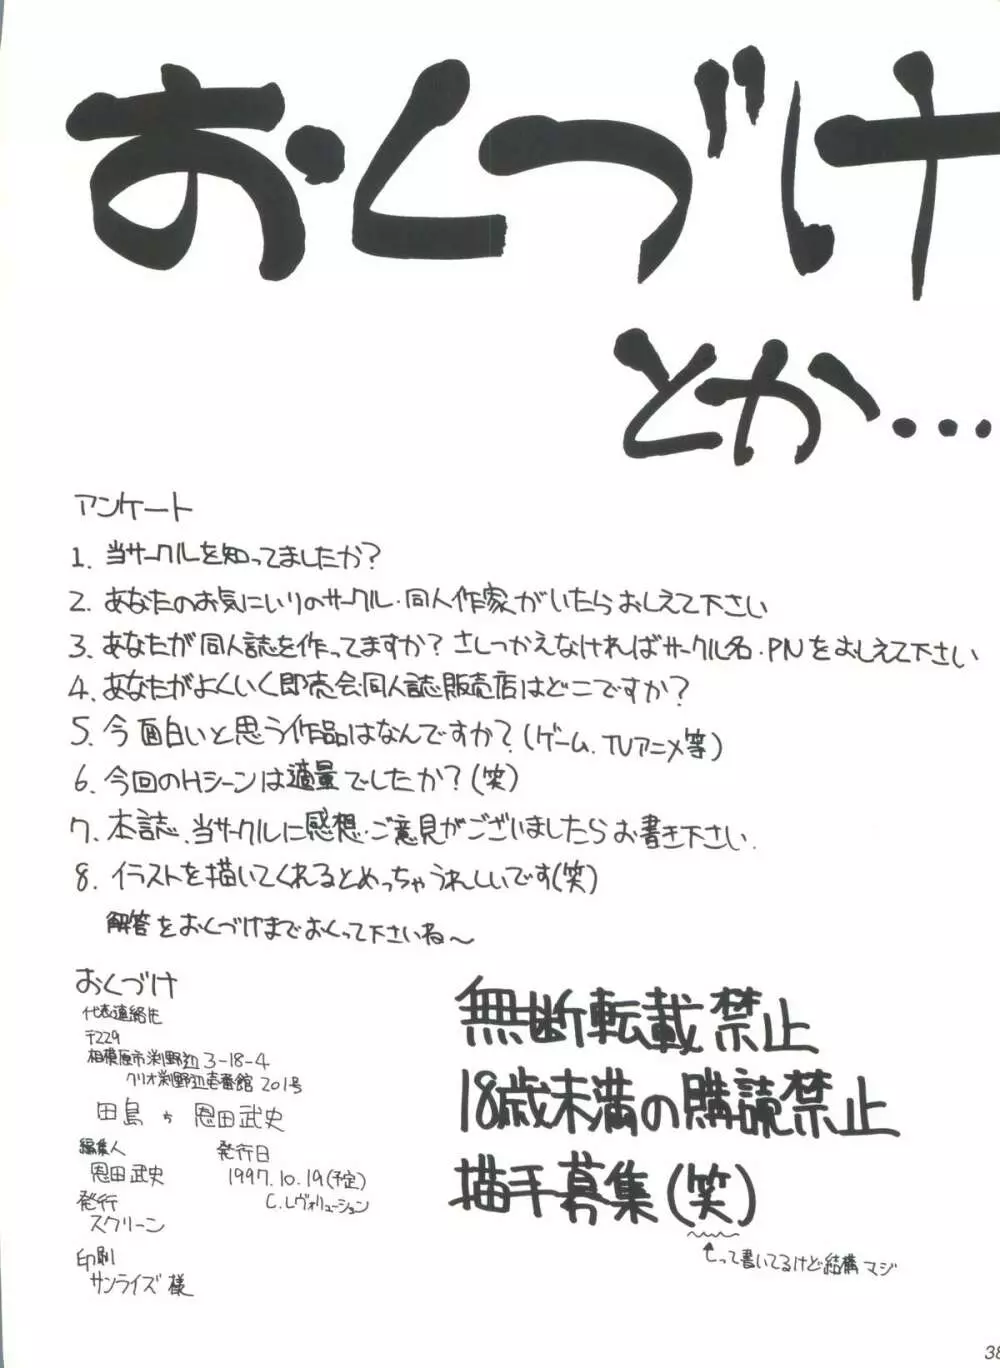 おくづけ
とか...
アンケート
1. 当サークルを知ってましたか?
2. あなたのお気にいりのサークル・同人作家がいたらおしえて下さい
3. あなたが同人誌を作ってますか? さしつかえなければサークル名・PNをおしえて下さい
4. あなたがよくいく即売会・同人誌販売店はどこですか?
5. 今面白いと思う作品はなんですか?(ゲーム、TVアニメ等)
6. 今回のHシーンは適量でしたか?(笑)
7. 本誌、当サークルに感想・ご意見がございましたらお書き下さい.
8. イラストを描いてくれるとめっちゃうれしいです(笑)
解答をおくづけまでおくって下さいね〜
おくづけ
代表連絡先
〒229
相模原市渕野辺3-18-4
クリオ渕野辺壱番館201号
田島方 恩田武史
編集人
恩田武史
発行
スクリーン
印刷
サンライズ様
発行日
1997.10.19(予定)
C.レヴォリューション
無断転載禁止
18歳未満の購読禁止
描手募集(笑)
って書いてるけど結構マジ
38